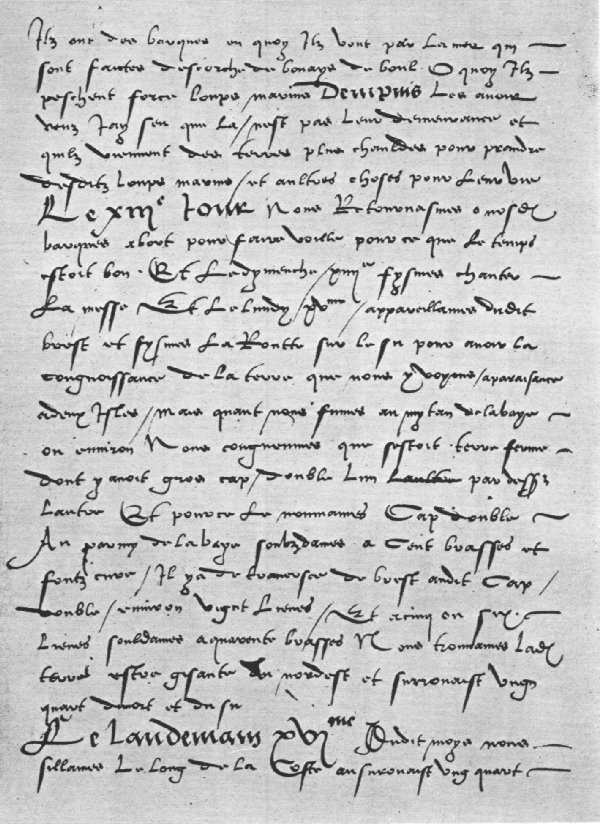 Ilz ont des barques en quoy Ilz vont par la mer qui
sont faictes descorche de bouays de boul O quoy Ilz
peschent force loups marins Depuis les avoir
veuz Jay seu que la / nest pas leur demeurance et
quilz viennent des terres plus chauldes pour prandre
desditz loups marins / et aultres choses pour leur vie
Le xiii.e Jour Nous Retournasmes o nosd
barques abort pour faire voille pour ce que le temps
estoit bon Et le dymenche / xiiii.e fysmes chanter
La messe Et le lundy / xv.me / appareillames dudit
brest et fysmes La Routte sur le su pour avoir la
congnoissance de la terre que nous y voyons / aparaisance
a deux Isles / Mais quant nous fumes au mytan de la baye
ou environ Nous congneumes que sestoit terre ferme
dont y avoit gros cap / double lun par dessus
Lautre Et pour ce le nommames Cap double
Au parmy de la baye sondames a Cent brasses et
fontz / Il y a de de brest audit Cap /
double / environ vignt lieues / Et a cinq ou six
Lieues sondames a quarente brasses Nous trouvames lad
terre estre gisante nordest et surrouaist ung
quart du nort et du su
Le landemain xvi.me dudit moys nous
sillames Le long de la Coste au surouaist ung quart